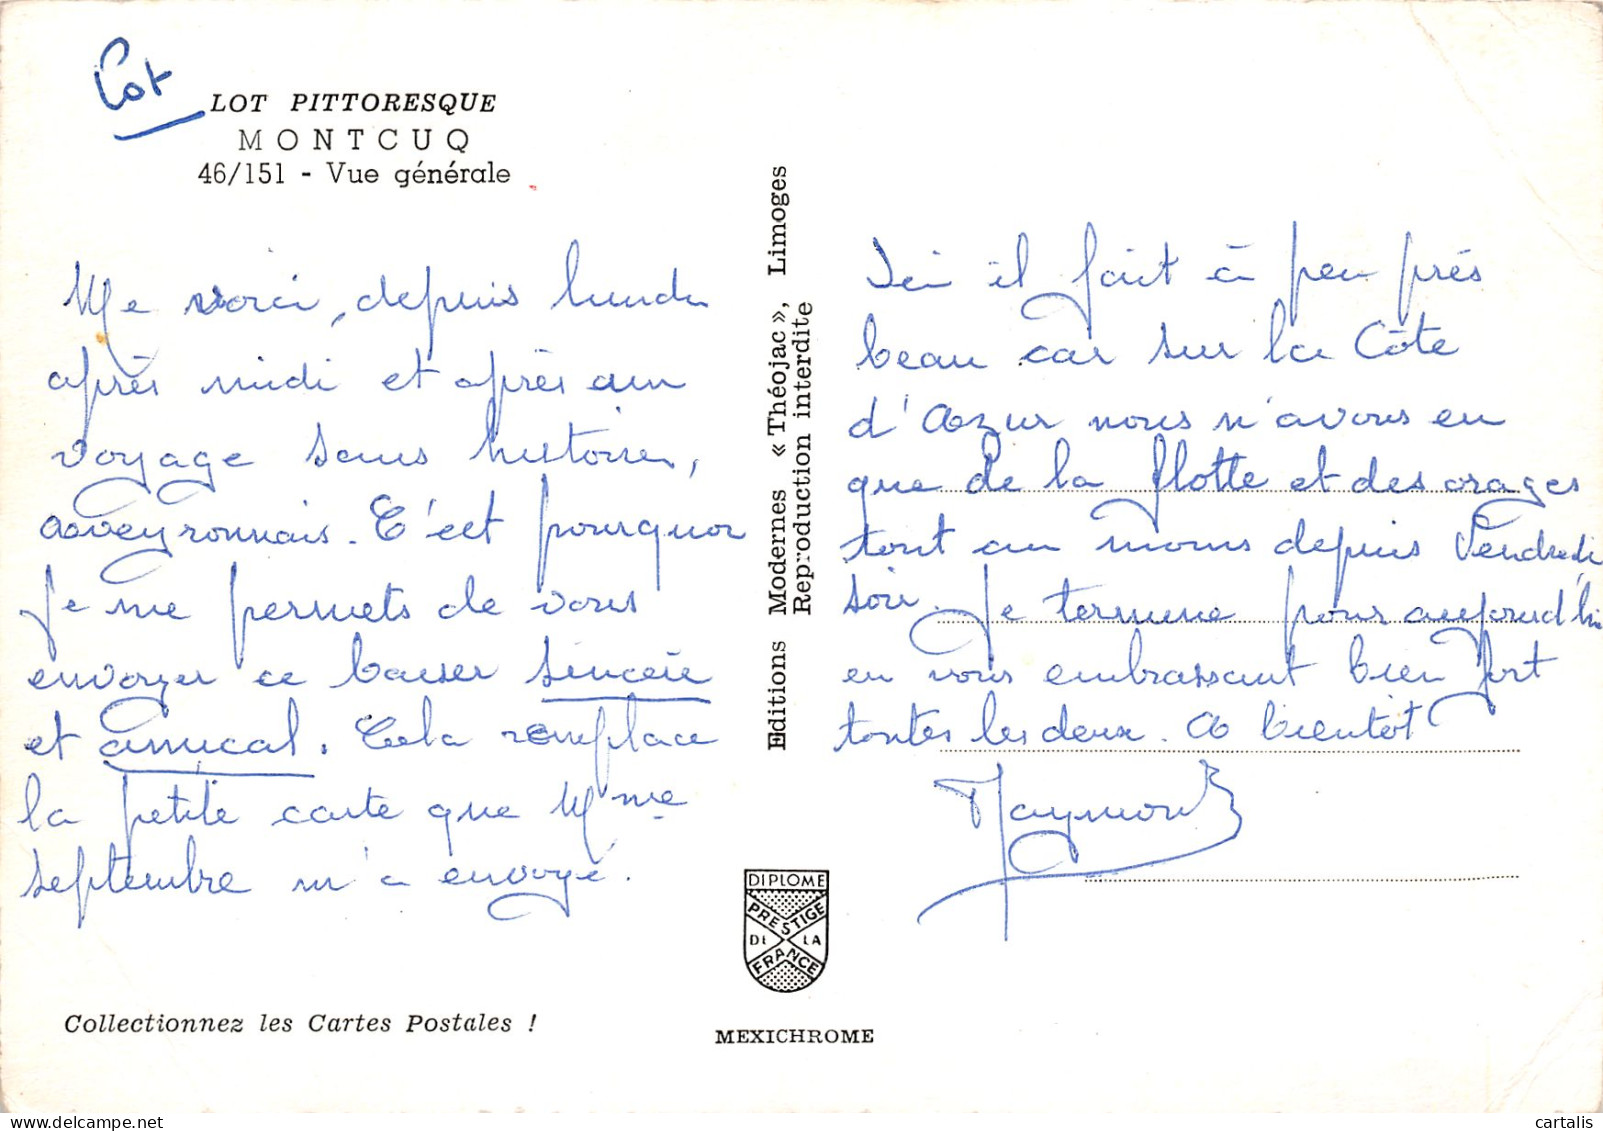 Lot
LOT PITTORESQUE
MONTCUQ
46/151 - Vue générale
Me voici, depuis lundi
après midi et après un
voyage sans histoires,
aveyronnais. C'est pourquoi
je me permets de vous
envoyer ce baiser sincère
et amical. Cela remplace
la petite carte que Mme
septembre m'a envoyé.
Collectionnez les Cartes Postales !
Editions Modernes « Théojac », Limoges
Reproduction interdite
DIPLOME
PRESTIGE
DE LA
FRANCE
MEXICHROME
Ici il fait à peu près
beau car sur la Côte
d'Azur nous n'avons eu
que de la flotte et des orages
tout au moins depuis Vendredi
soir. Je termine pour aujourd'hui
en vous embrassant bien fort
toutes les deux. A bientôt
Raymond
cartalis